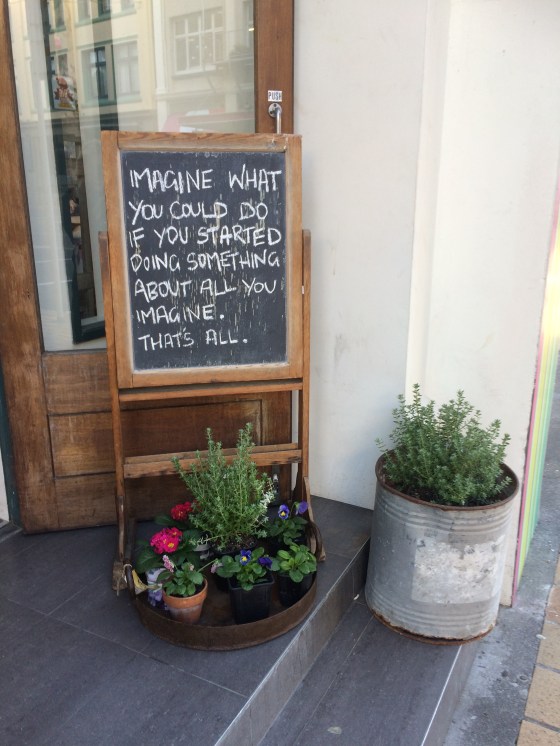 PUSH
IMAGINE WHAT
YOU COULD DO
IF YOU STARTED
DOING SOMETHING
ABOUT ALL YOU
IMAGINE.
THAT'S ALL.